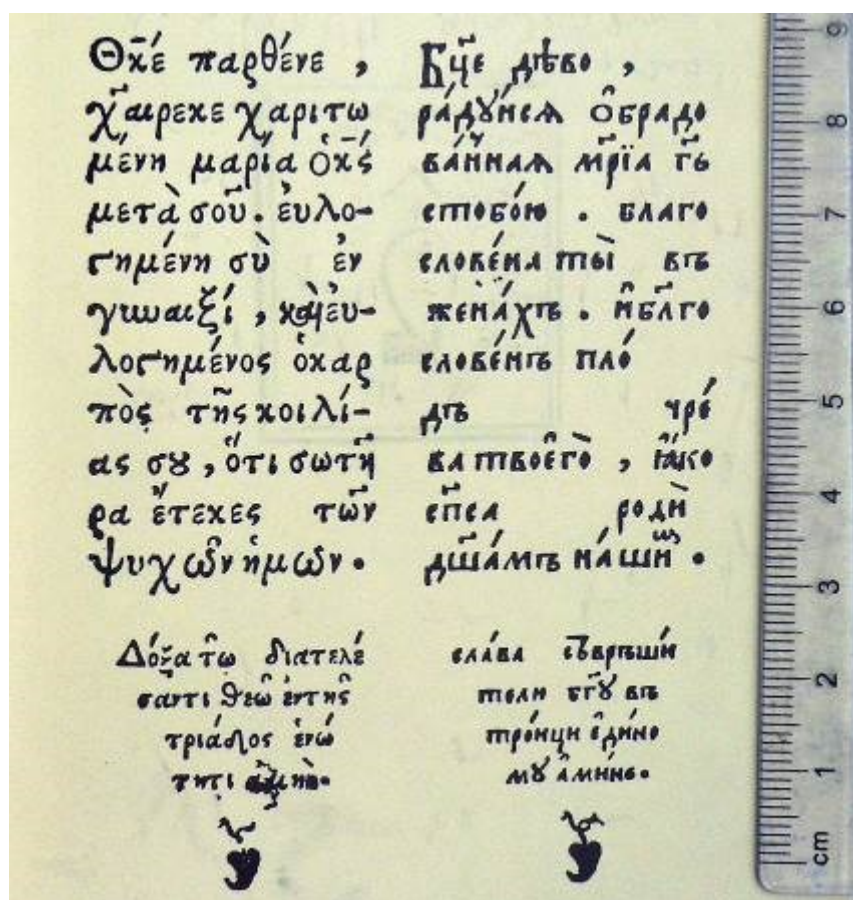 Θκ͠έ παρθένε ,
χαῖρεκε χαριτω
μένη μαρία ὁκ͠ς
μετὰ σοῦ. ἐυλο-
γημένη σὺ ἐν
γυναιξί , καὶ ἐυ-
λογημένος ὁκαρ
πὸς τῆς κοιλί-
ας σȣ , ὅτι σωτῆ
ρα ἔτεκες τῶν
ψυχῶν ἡμῶν.
Δόξα τῶ διατελέ
σαντι θεῶ ἐντῆς
τριάδος ἑνό
τητι
Бц҃е дѣво ,
ра́дꙋйсѧ ѻ҆брадо
ва́ннаѧ мр҃їа гь҃
стобо́ю . благо
слове́на ты̀ въ
жена́хъ . и҆бл҃го
слове́нъ пло́
дъ чре́
ва твоегѡ̀ , ꙗ҆́ко
сп҃са роди̏
дш҃а́мъ на́шиⷯ .
сла́ва съврьши́
тели бг҃ꙋ въ
тро́ици е҆ди́но
мꙋ а҆ми́нь.
9
8
7
6
5
4
3
2
1
cm